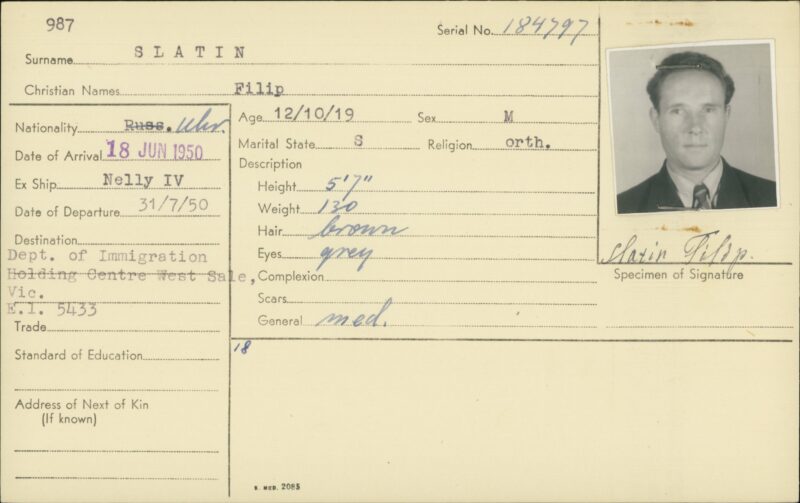 987
Serial No. 184797
Surname SLATIN
Christian Names Filip
Nationality Russ. Ukr.
Date of Arrival 18 JUN 1950
Ex Ship Nelly IV
Date of Departure 31/7/50
Destination
Dept. of Immigration
Holding Centre West Sale,
Vic.
E.I. 5433
Trade
Standard of Education
Address of Next of Kin
(If known)
Age 12/10/19 Sex M
Marital State S Religion orth.
Description
Height 5'7"
Weight 130
Hair brown
Eyes grey
Complexion
Scars
General med.
18
Slatin Filip.
Specimen of Signature
S. MED. 2085